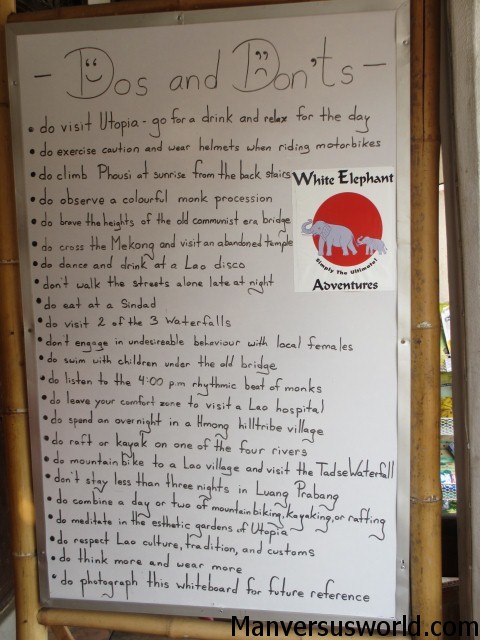 - Dos and Don'ts -
• do visit Utopia - go for a drink and relax for the day
• do exercise caution and wear helmets when riding motorbikes
• do climb Phousi at sunrise from the back stairs
• do observe a colourful monk procession
• do brave the heights of the old communist era bridge
• do cross the Mekong and visit an abandoned temple
• do dance and drink at a Lao disco
• don't walk the streets alone late at night
• do eat at a Sindad
• do visit 2 of the 3 waterfalls
• don't engage in undesireable behaviour with local females
• do swim with children under the old bridge
• do listen to the 4:00 p.m rhythmic beat of monks
• do leave your comfort zone to visit a Lao hospital
• do spend an overnight in a Hmong hilltribe village
• do raft or kayak on one of the four rivers
• do mountain bike to a Lao village and visit the Tad se Waterfall
• don't stay less than three nights in Luang Prabang
• do combine a day or two of mountain biking, kayaking, or rafting
• do meditate in the esthetic gardens of Utopia
• do respect Lao culture, tradition, and customs
• do think more and wear more
• do photograph this whiteboard for future reference
White Elephant
Simply The Ultimate!
Adventures
Manversusworld.com